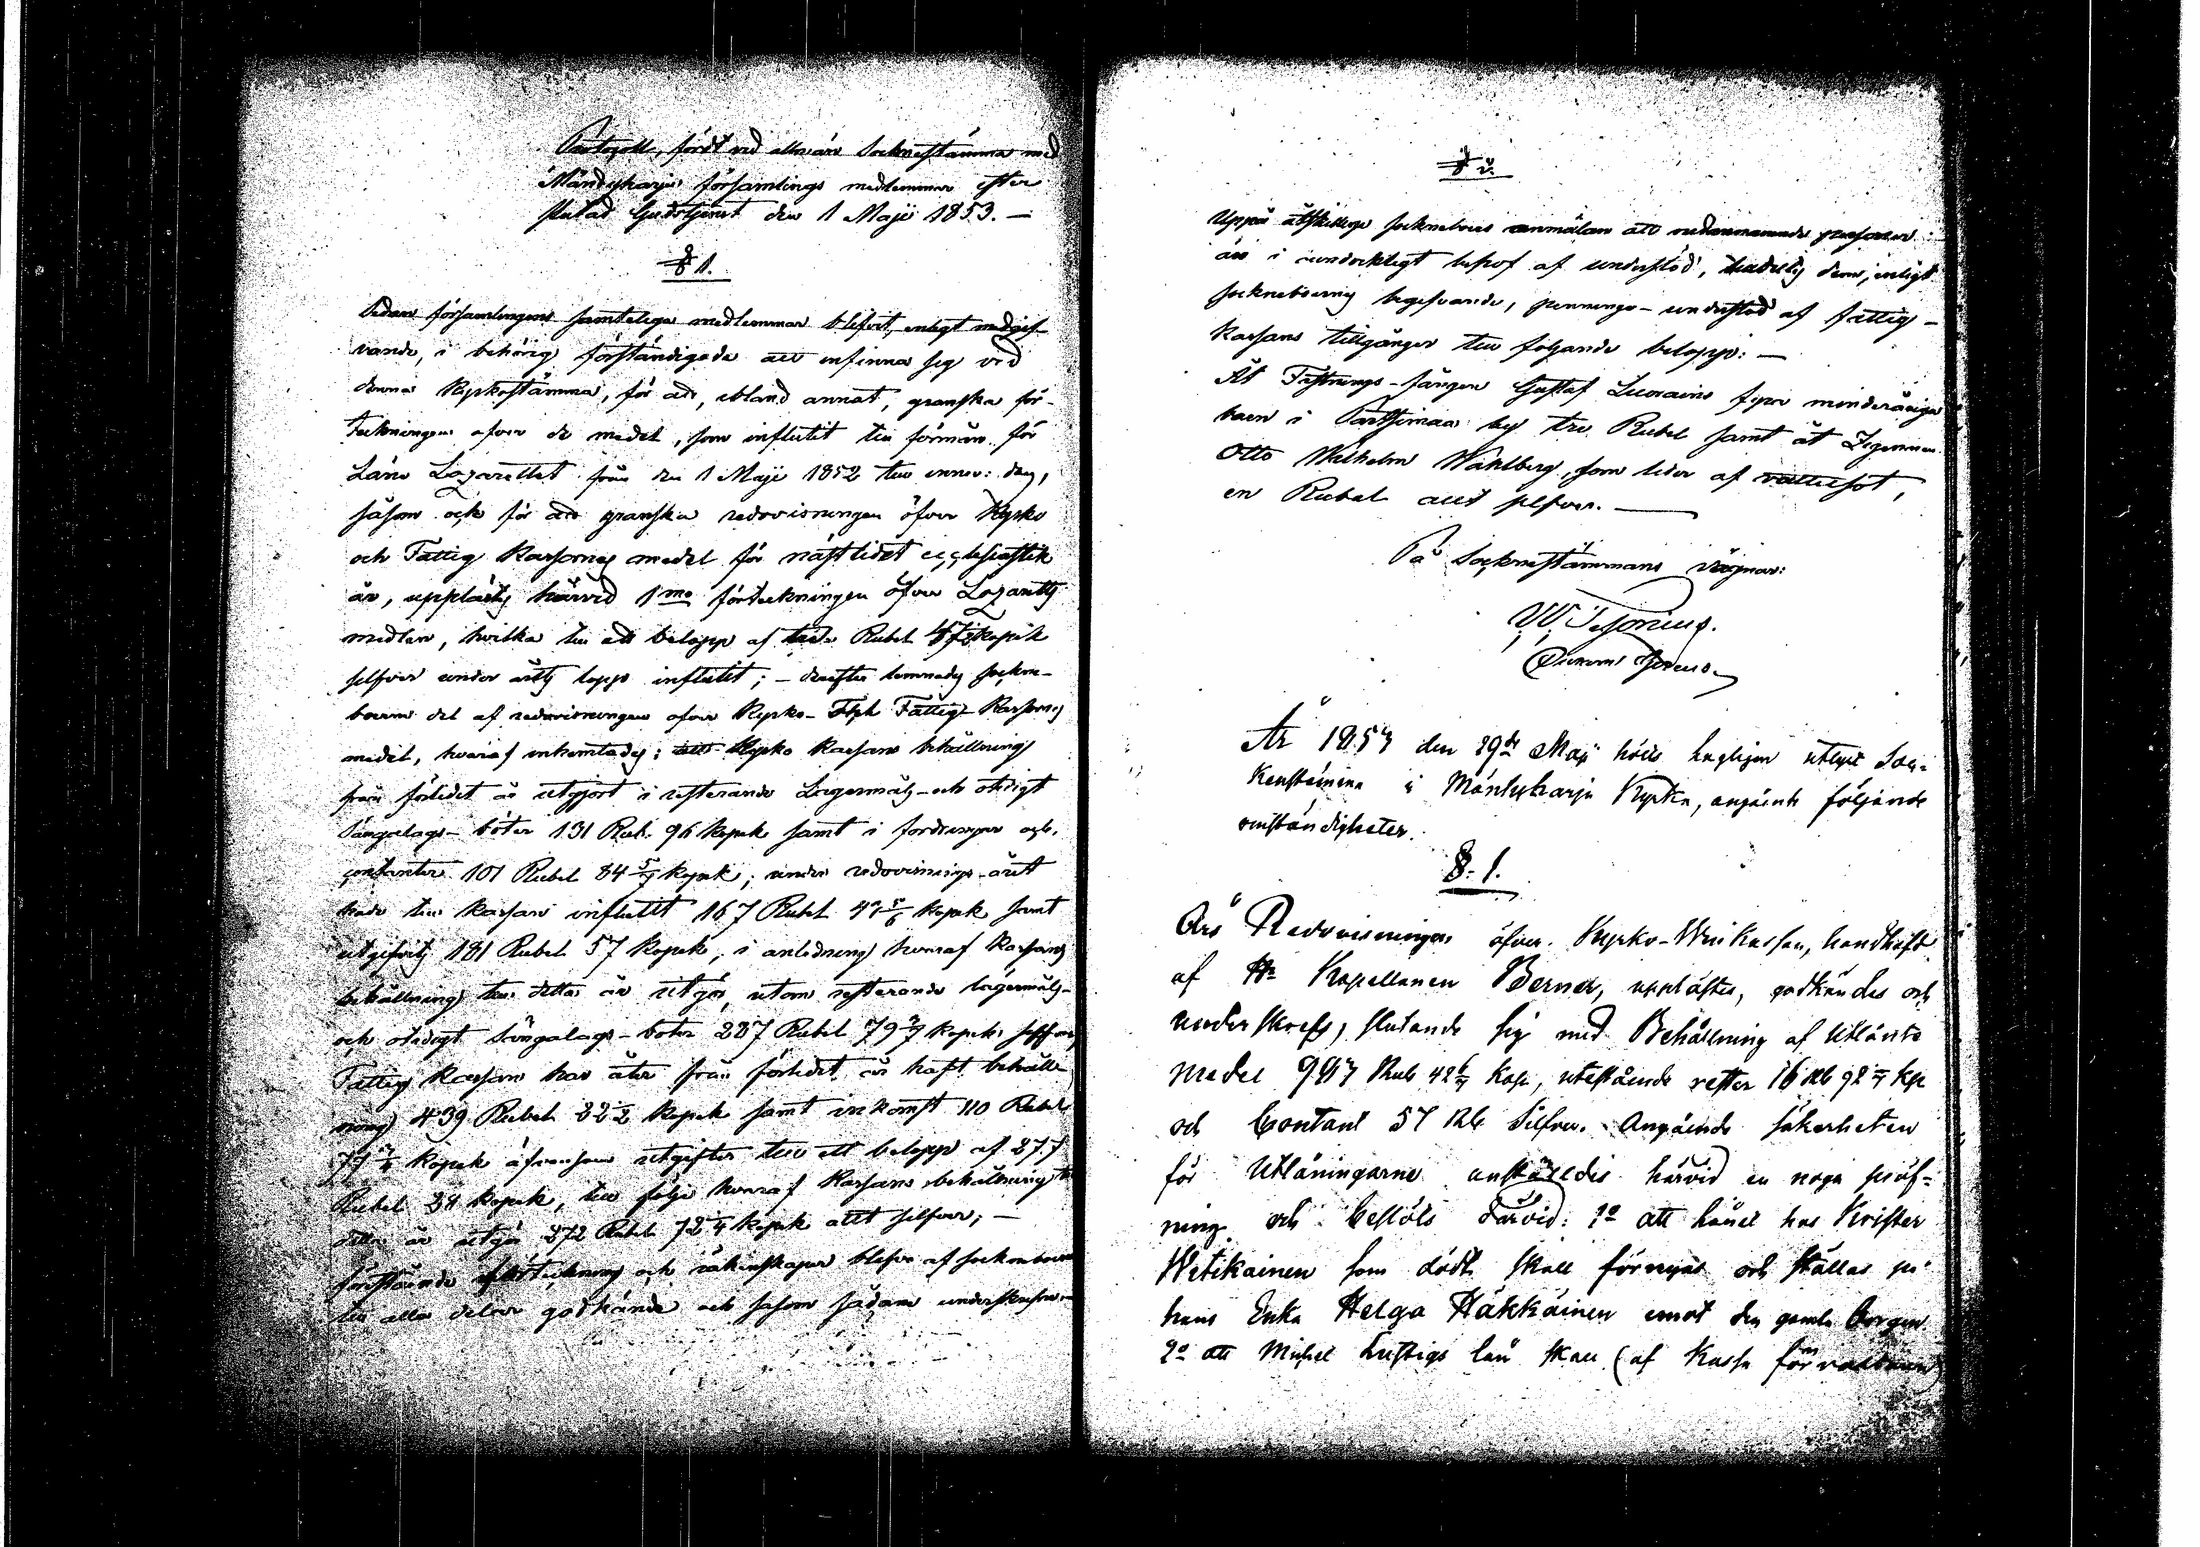 Protocoll, fördt vid allmän Sockenstämma med
Mändyharju församlings medlemmar efter
slutad Gudstjenst den 1 Maji 1853. —
§ 1.
Sedan församlingens samtelige medlemmar blifvit, enligt medgif-
vande, i behörig förständigade att infinna sig vid
denna Kyrkostämma, för att, ibland annat, granska för-
teckningen öfver de medel, som influtit till förmån för
Läns Lazarettet från den 1 Maji 1852 till innev: dag,
såsom ock för att granska redovisningen öfver Kyrko
och Fattig Kassornas medel för nästlidet ecclesiastik
år, upplästes härvid 1mo förteckningen öfver Lazaretts
medlen, hvilka till ett belopp af Rubel kopek
silfver under årets lopp influtit; — derefter lemnades sockne-
boerne del af redovisningen öfver Kyrko- och Fattig Kassornas
medel, hvaraf inhemtades: att Kyrko kassans behållning
från förledet år utgjort i resterande Lägermåls- och otidigt
Sängalags- böter 131 Rub. 96 kopek samt i fordringar och
contanter 101 Rubel 84 5/7 kopek; under redovisnings-året
hade till kassan influtit 167 Rubel kopek samt
utgifvits 181 Rubel 57 kopek, i anledning hvaraf kassans
behållning till detta år utgör, utom resterande lägermåls-
och otidigt sängalags- böter 287 Rubel 79 2/7 kopek silfver;
Fattig kassan har åter från förledet år haft behåll-
ning 439 Rubel 22 1/2 kopek samt inkomst 110 Rubel
kopek äfvensom utgifter till ett belopp af 277
Rubel 28 kopek, till följe hvaraf kassans behållning till
detta år utgör 272 Rubel 72 1/4 kopek allt silfver; —
förestående förteckning och räkenskaper blefvo af sockneboerne
till alla delar godkände och såsom sådane underskrefne. —
§ 2.
Uppå åtskillige socknebors anmälan att nedannämnde personer
äro i oundvikligt behof af understöd, tilldeltes dem, enligt
sockneboernes begifvande, pennings- understöd af fattig-
kassans tillgångar till följande belopp: —
Åt Fästnings- fången Gustaf Luorains fyra minderåriga
barn i Partsimaa by tre Rubel samt åt Legomannen
Otto Wilhelm Wahlberg, som lider af vattusot,
en Rubel allt silfver. —
På Sockenstämmans vägnar:
År 1854 den 29de Maji hölls lagligen utlyst Soc-
kenstämma i Mändyharju Kyrka, angående följande
omständigheter.
§. 1.
Års Redovisningen öfver Kyrko-Winkassan, handhafd
af Hr Kapellanen Berner, upplästes, godkändes och
underskrefs, slutande sig med Behållning af Utlånte
medel 997 Rub 42 6/7 kop, utestående rester 16 Rb 92 kp
och Contant 57 Rb Silfver. Angående säkerheten
för Utlåningarne anställdes härvid en noga pröf-
ning och beslöts därvid: 1o att lånet hos Krister
Wetikainen som dödt skall förnyas och ställas på
hans Enka Helga Häkkäinen emot den gamla Borgen.
2o att Michel Lustigs lån skall (af Kassa förvaltaren)